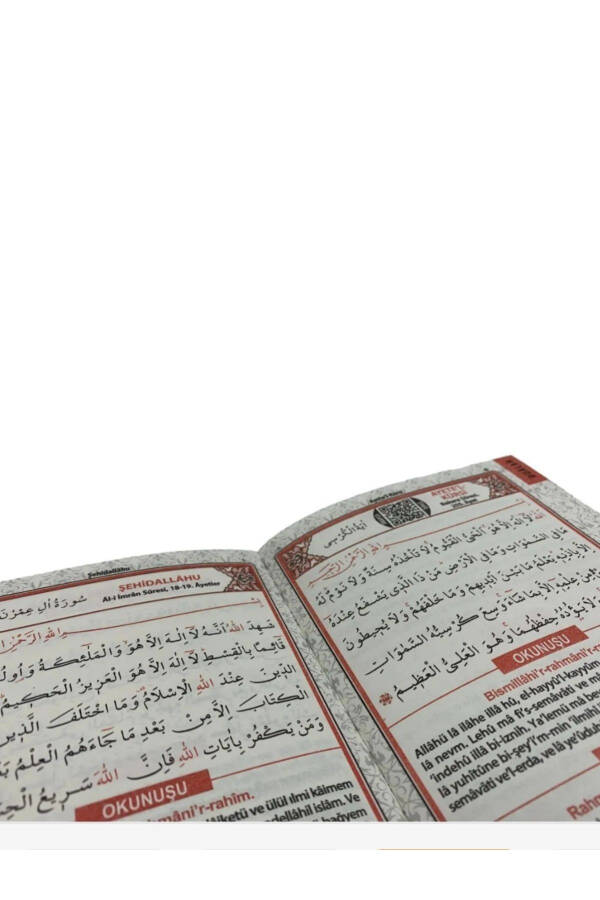 Şehidallâhu
ŞEHİDALLÂHU
Al-i İmrân Sûresi, 18-19. Âyetler
سُورَةُ اٰلِ عِمْرٰنَ
شَهِدَ اللّٰهُ اَنَّهُ لَٓا اِلٰهَ اِلَّا هُوَ وَالْمَلٰٓئِكَةُ وَاُولُ
قَٓائِمًا بِالْقِسْطِ لَٓا اِلٰهَ اِلَّا هُوَ الْعَزِيزُ الْحَكِيمُ
الدِّينَ عِنْدَ اللّٰهِ الْاِسْلَامُ وَمَا اخْتَلَفَ الَّذِينَ
الْكِتَابَ اِلَّا مِنْ بَعْدِ مَا جَٓاءَهُمُ الْعِلْمُ
وَمَنْ يَكْفُرْ بِاٰيَاتِ اللّٰهِ فَاِنَّ اللّٰهَ سَرِيعُ
OKUNUŞU
mâni'r-rahîm.
ve ülül ılmi kâimem
islâm. Ve
bağyem
Ayete'l Kürsi
AYETE'L
KÜRSİ
اٰيَةُ الْكُرْسِي
اللّٰهُ لَٓا اِلٰهَ اِلَّا هُوَ الْحَيُّ الْقَيُّومُ لَا تَأْخُذُهُ سِنَةٌ وَلَا نَوْمٌ لَهُ
مَا فِي السَّمٰوَاتِ وَمَا فِي الْاَرْضِ مَنْ ذَا الَّذِي يَشْفَعُ عِنْدَهُٓ
اِلَّا بِاِذْنِهِ يَعْلَمُ مَا بَيْنَ اَيْدِيهِمْ وَمَا خَلْفَهُمْ وَلَا يُحِيطُونَ
مِنْ عِلْمِهِٓ اِلَّا بِمَا شَٓاءَ وَسِعَ كُرْسِيُّهُ السَّمٰوَاتِ
وَلَا يَؤُدُهُ حِفْظُهُمَا وَهُوَ الْعَلِيُّ الْعَظِيمُ
OKUNUŞU
Bismillâhi'r-rahmâni'r-ra
Allâhü lâ ilâhe illâ hû, el-hayyü'l-kayyûm
lâ nevm. Lehû mâ fi's-semâvâti ve m
'indehû illâ bi-iznih. Ya'lemü mâ be
lâ yuhîtûne bi-şey'i'm-min 'ilmihî
semâvâti ve'l-erda, ve lâ ye'ûduh
Rahm